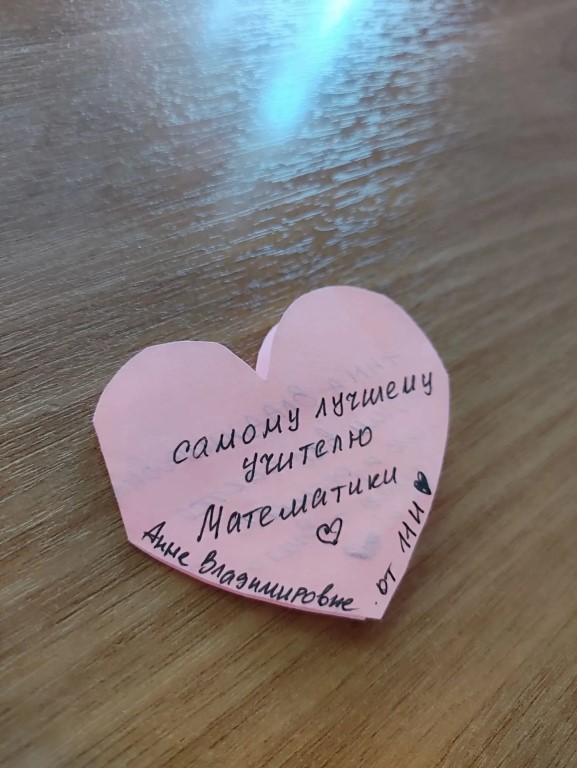 самому лучшему
учителю
Математики
♡
Анне Владимировне
от 11И ♥